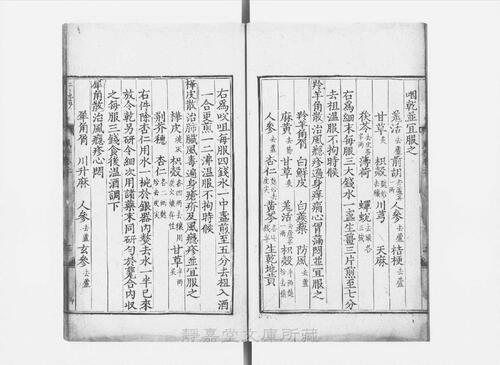 咽乾並宜服之
羌活去蘆 前胡去蘆 人參去蘆 桔梗去蘆
甘草炙 枳殼 川芎 天麻
茯苓 薄荷 蟬蛻
右爲細末每服三大錢水一盞生薑三片煎至七分
去柤溫服不拘時候
羚羊角散治風軫遍身痒痛心胷滿悶並宜服之
羚羊角屑 白鮮皮 白蒺藜 防風去蘆
麻黃 甘草炙 羌活去蘆 枳殼
人參去蘆 杏仁 黃芩 生乾地黃
右爲㕮咀每服四錢水一中盞煎至五分去柤入酒
一合更煎一二沸溫服不拘時候
樺皮散治肺臟風毒遍身癮疹及風癮疹並宜服之
樺皮 枳殼 甘草炙
荆芥穗 杏仁
右件除杏仁用水一椀於銀器內熬去水一半已來
放令乾另研令細次用諸藥末同研勻於甆合內收
之每服三錢食後溫酒調下
犀角散治風癮疹心悶
犀角屑 川升麻 人參去蘆 玄參去蘆
靜嘉堂文庫所藏